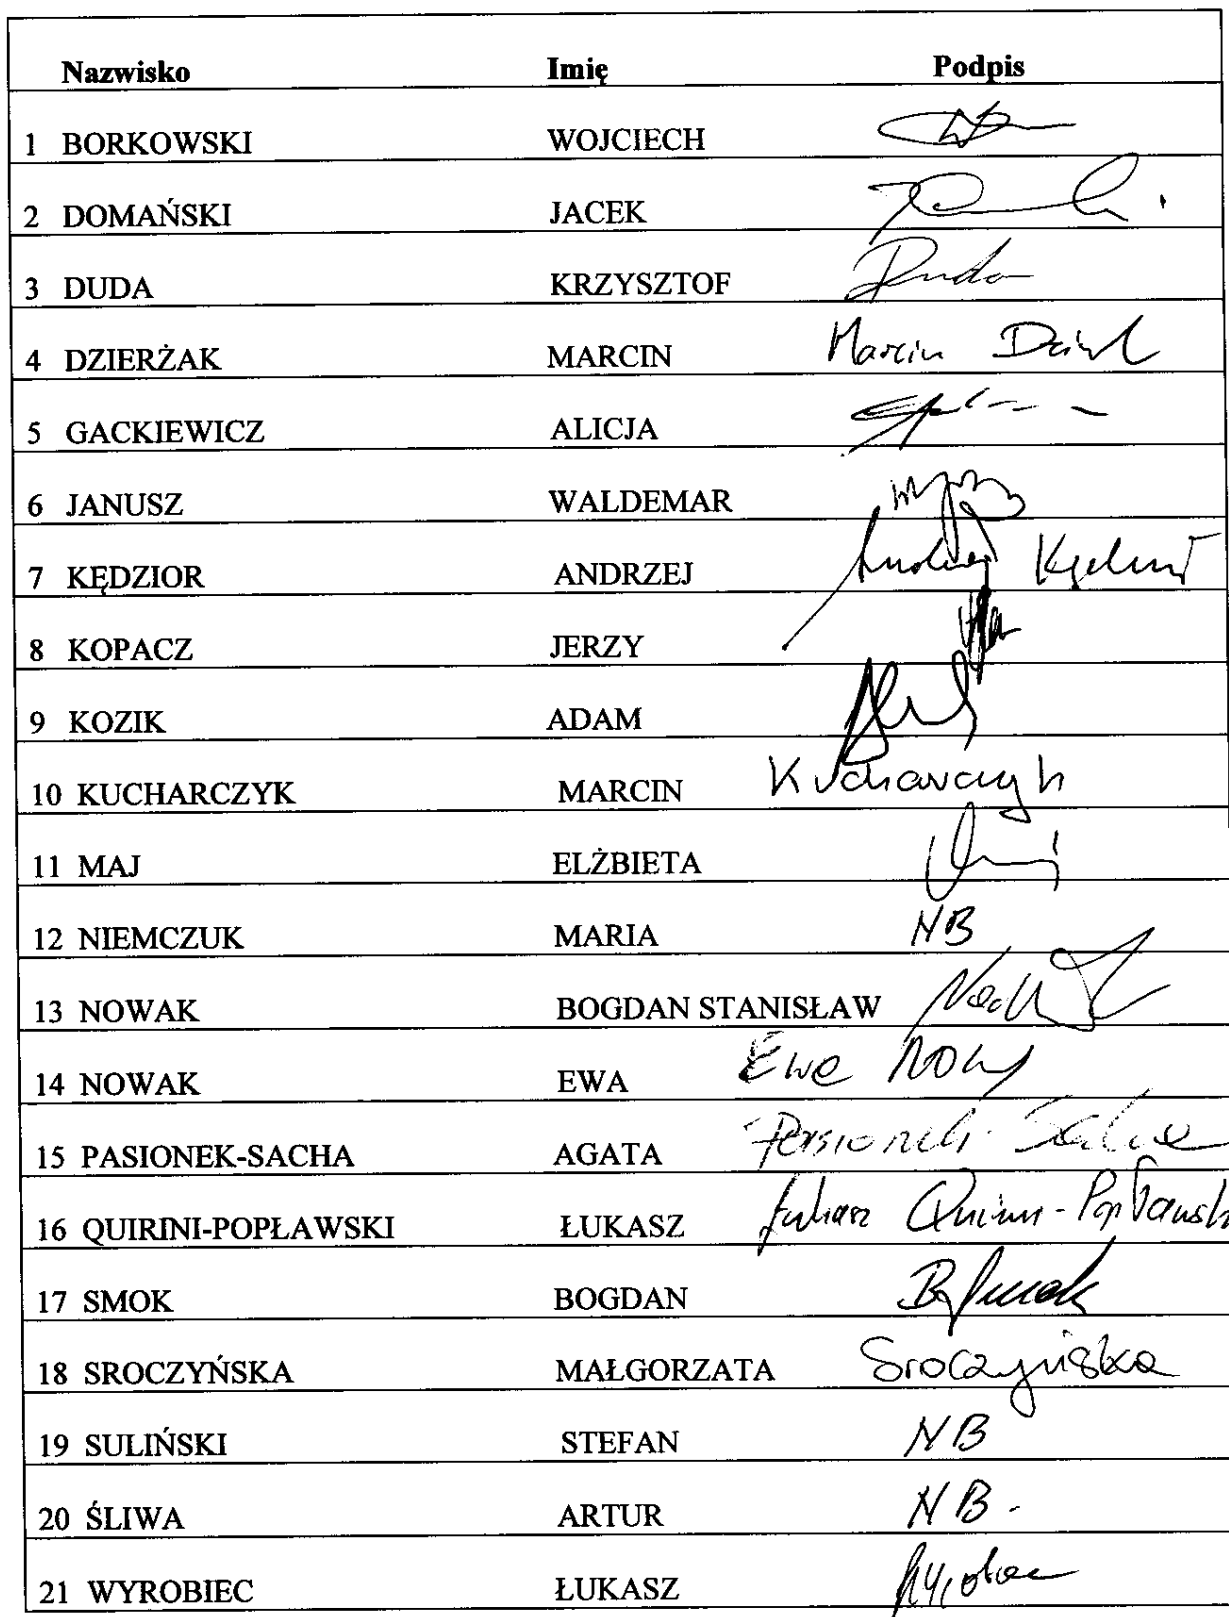 Nazwisko Imię Podpis
1 BORKOWSKI WOJCIECH
2 DOMAŃSKI JACEK
3 DUDA KRZYSZTOF Duda
4 DZIERŻAK MARCIN Marcin
5 GACKIEWICZ ALICJA
6 JANUSZ WALDEMAR
7 KĘDZIOR ANDRZEJ Andrzej
8 KOPACZ JERZY
9 KOZIK ADAM
10 KUCHARCZYK MARCIN Kucharczyk
11 MAJ ELŻBIETA
12 NIEMCZUK MARIA NB
13 NOWAK BOGDAN STANISŁAW
14 NOWAK EWA Ewa
15 PASIONEK-SACHA AGATA Pasionek-Sacha
16 QUIRINI-POPŁAWSKI ŁUKASZ Łukasz Quirini-Popławski
17 SMOK BOGDAN
18 SROCZYŃSKA MAŁGORZATA Sroczyńska
19 SULIŃSKI STEFAN NB
20 ŚLIWA ARTUR NB-
21 WYROBIEC ŁUKASZ